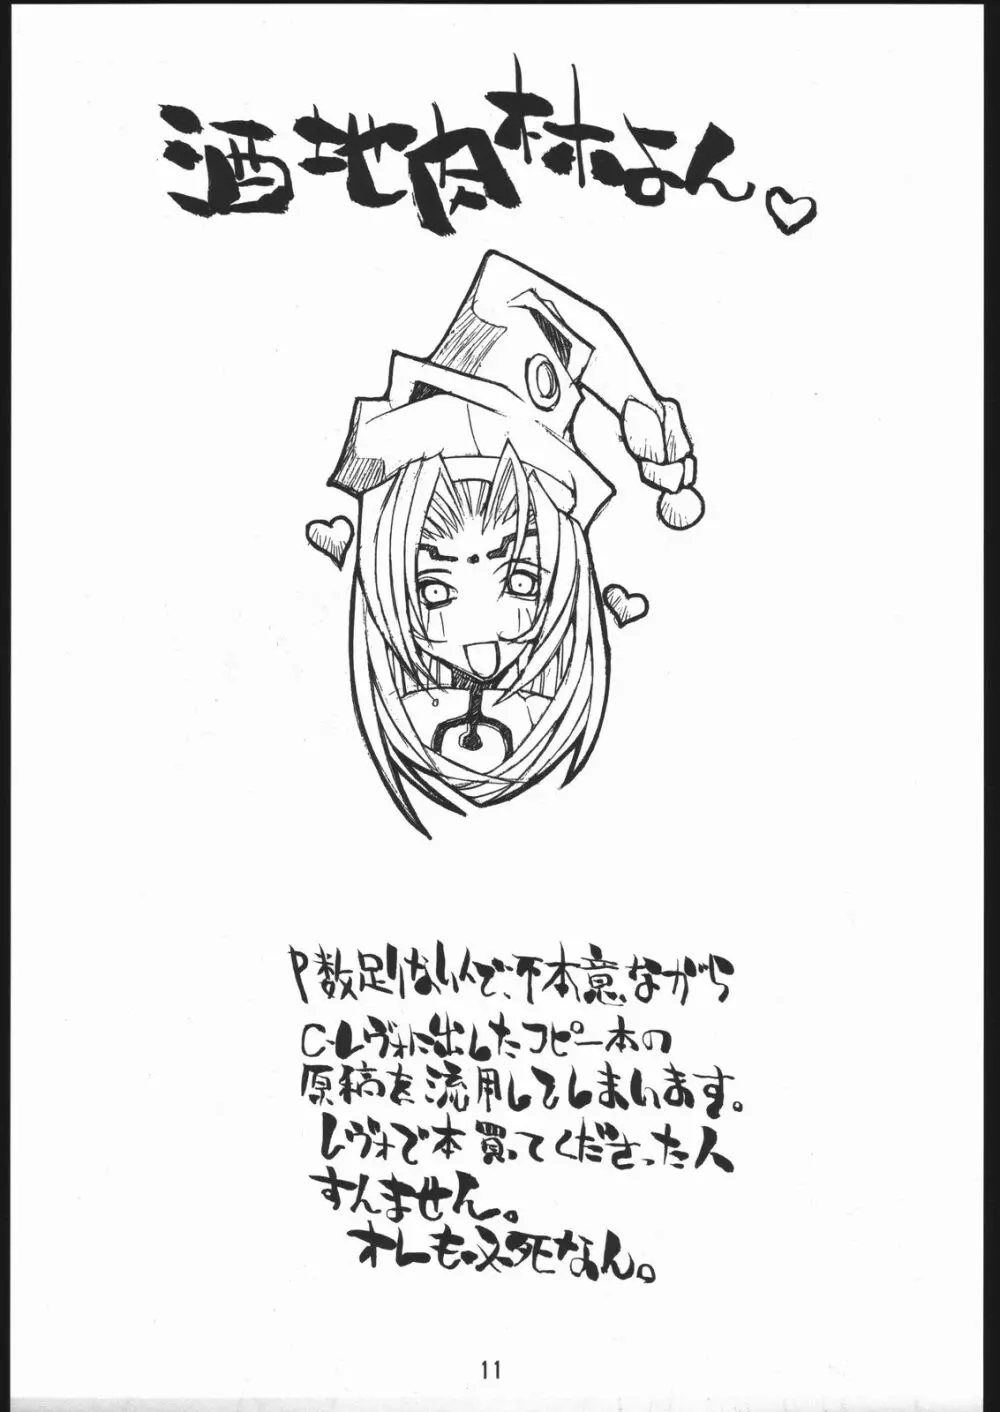 酒地肉林なん。♡
P数足りないんで、不本意ながら
C-レヴォに出したコピー本の
原稿を流用してしまいます。
レヴォで本買ってくださった人
すんません。
オレも必死なん。
11